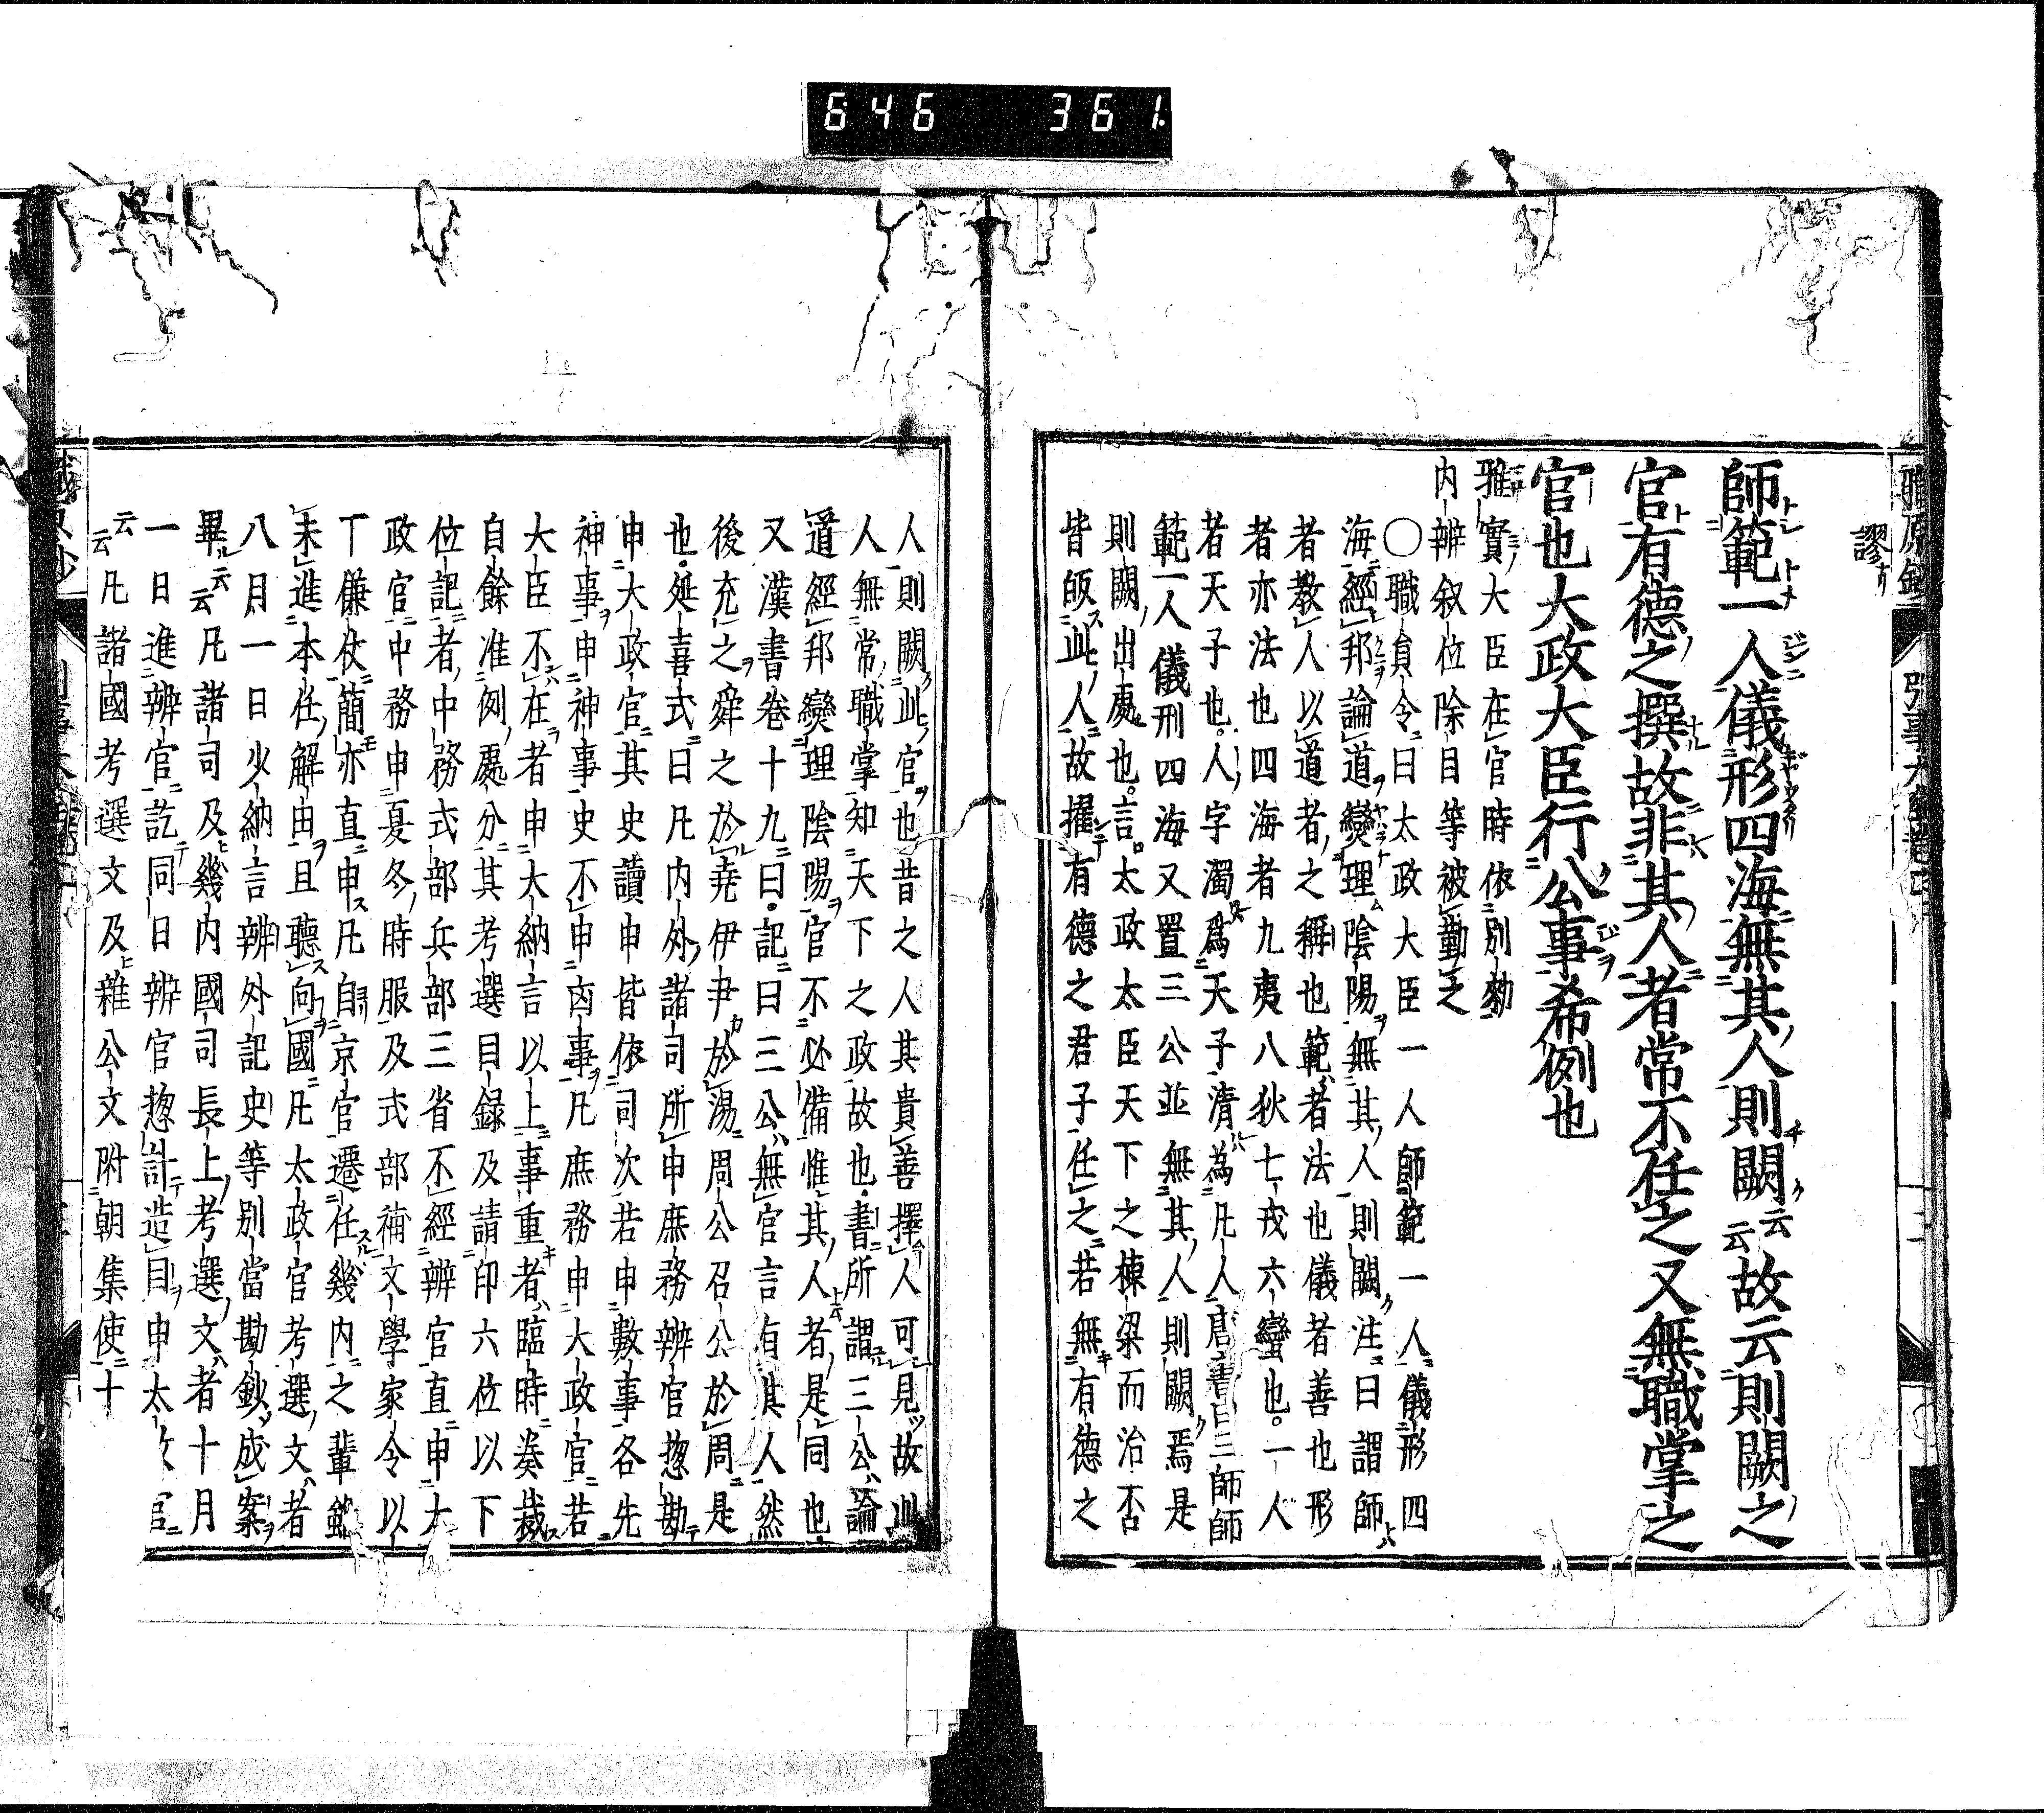 646 361
謬
師範一人儀形四海無其人則闕云云故云則闕之
官有德之撰故非其人者常不任之又無職掌之
官也大政大臣行公事希例也
雅實大臣在官時依別勅
内辨叙位除目等被勤之
〇職員令曰太政大臣一人師範一人儀形四
海經邦論道燮理陰陽無其人則闕注曰謂師
者教人以道者之稱也範者法也儀者善也形
者亦法也四海者九夷八狄七戎六蠻也一人
者天子也人字濁為天子清為凡人唐書曰三師師
範一人儀刑四海又置三公並無其人則闕焉是
則闕出處也言太政太臣天下之棟梁而治否
皆皈此人故擢有德之君子任之若無有德之
人則闕此官也昔之人其貴善擇人可見故此
人無常職掌知天下之政故也書所謂三公論
道經邦燮理陰陽官不必備惟其人者是同也
又漢書卷十九曰記曰三公無官言有其人然
後充之舜之於堯伊尹於湯周公召公於周是
也延喜式曰凡内外諸司所申庶務辨官惣勘
申大政官其史讀申皆依司次若申數事各先
神事申神事史不申凶事凡庶務申大政官若
大臣不在者申大納言以上事重者臨時奏裁
自餘准例處分其考選目録及請印六位以下
位記者中務式部兵部三省不經辨官直申大
政官中務申夏冬時服及式部補文學家令以
下傔仗簡亦直申凡自京官遷任畿内之輩雖
未進本任解由且聽向國凡太政官考選文者
八月一日少納言辨外記史等別當勘鈔成案
畢云云凡諸司及畿内國司長上考選文者十月
一日進辨官訖同日辨官惣計造目申太政官
云云凡諸國考選文及雜公文附朝集使十